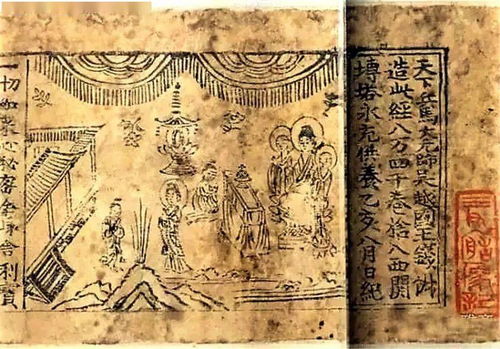 天下兵馬大元帥吳越國王錢俶
造此經八万四千卷捨入西關
塼塔永充供養乙亥八月日紀
一切如來心秘密全身舍利寶